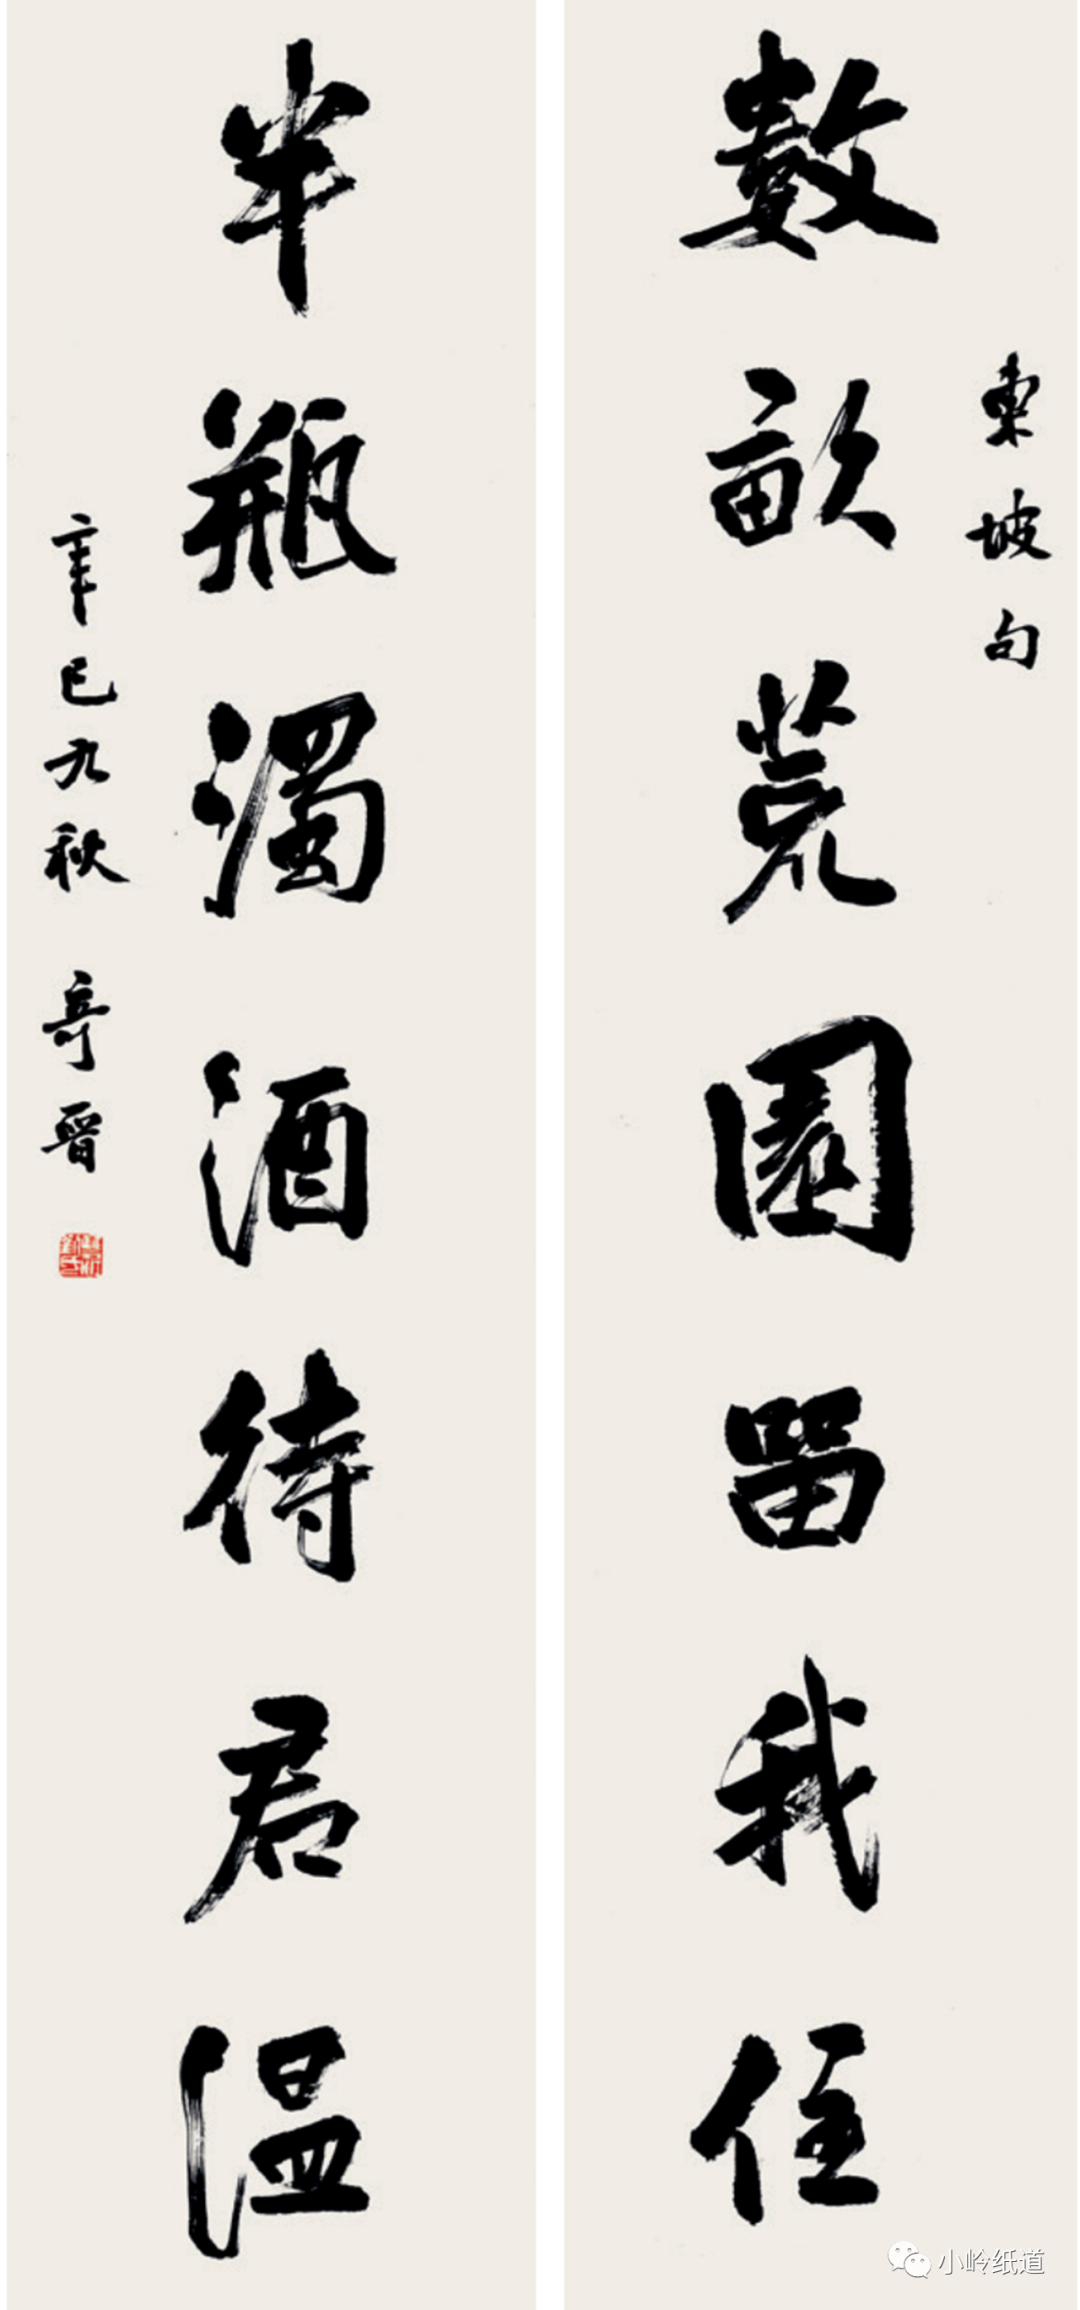 東坡句
數畝荒園留我住
半瓶濁酒待君温
辛巳九秋 奇晋
小岭纸道